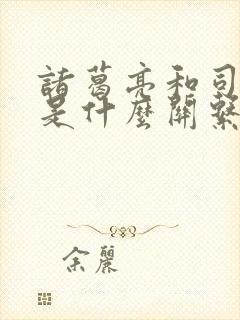 諸葛亮和司
是什麼關係
余麗